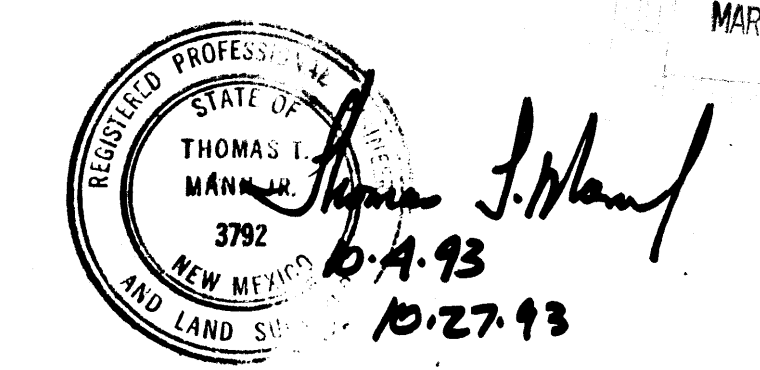 MAR
REGISTERED PROFESSIONAL
STATE OF
THOMAS T.
MANN JR.
3792
NEW MEXICO
AND LAND
Thomas T. Mann
10.4.93
10.27.93